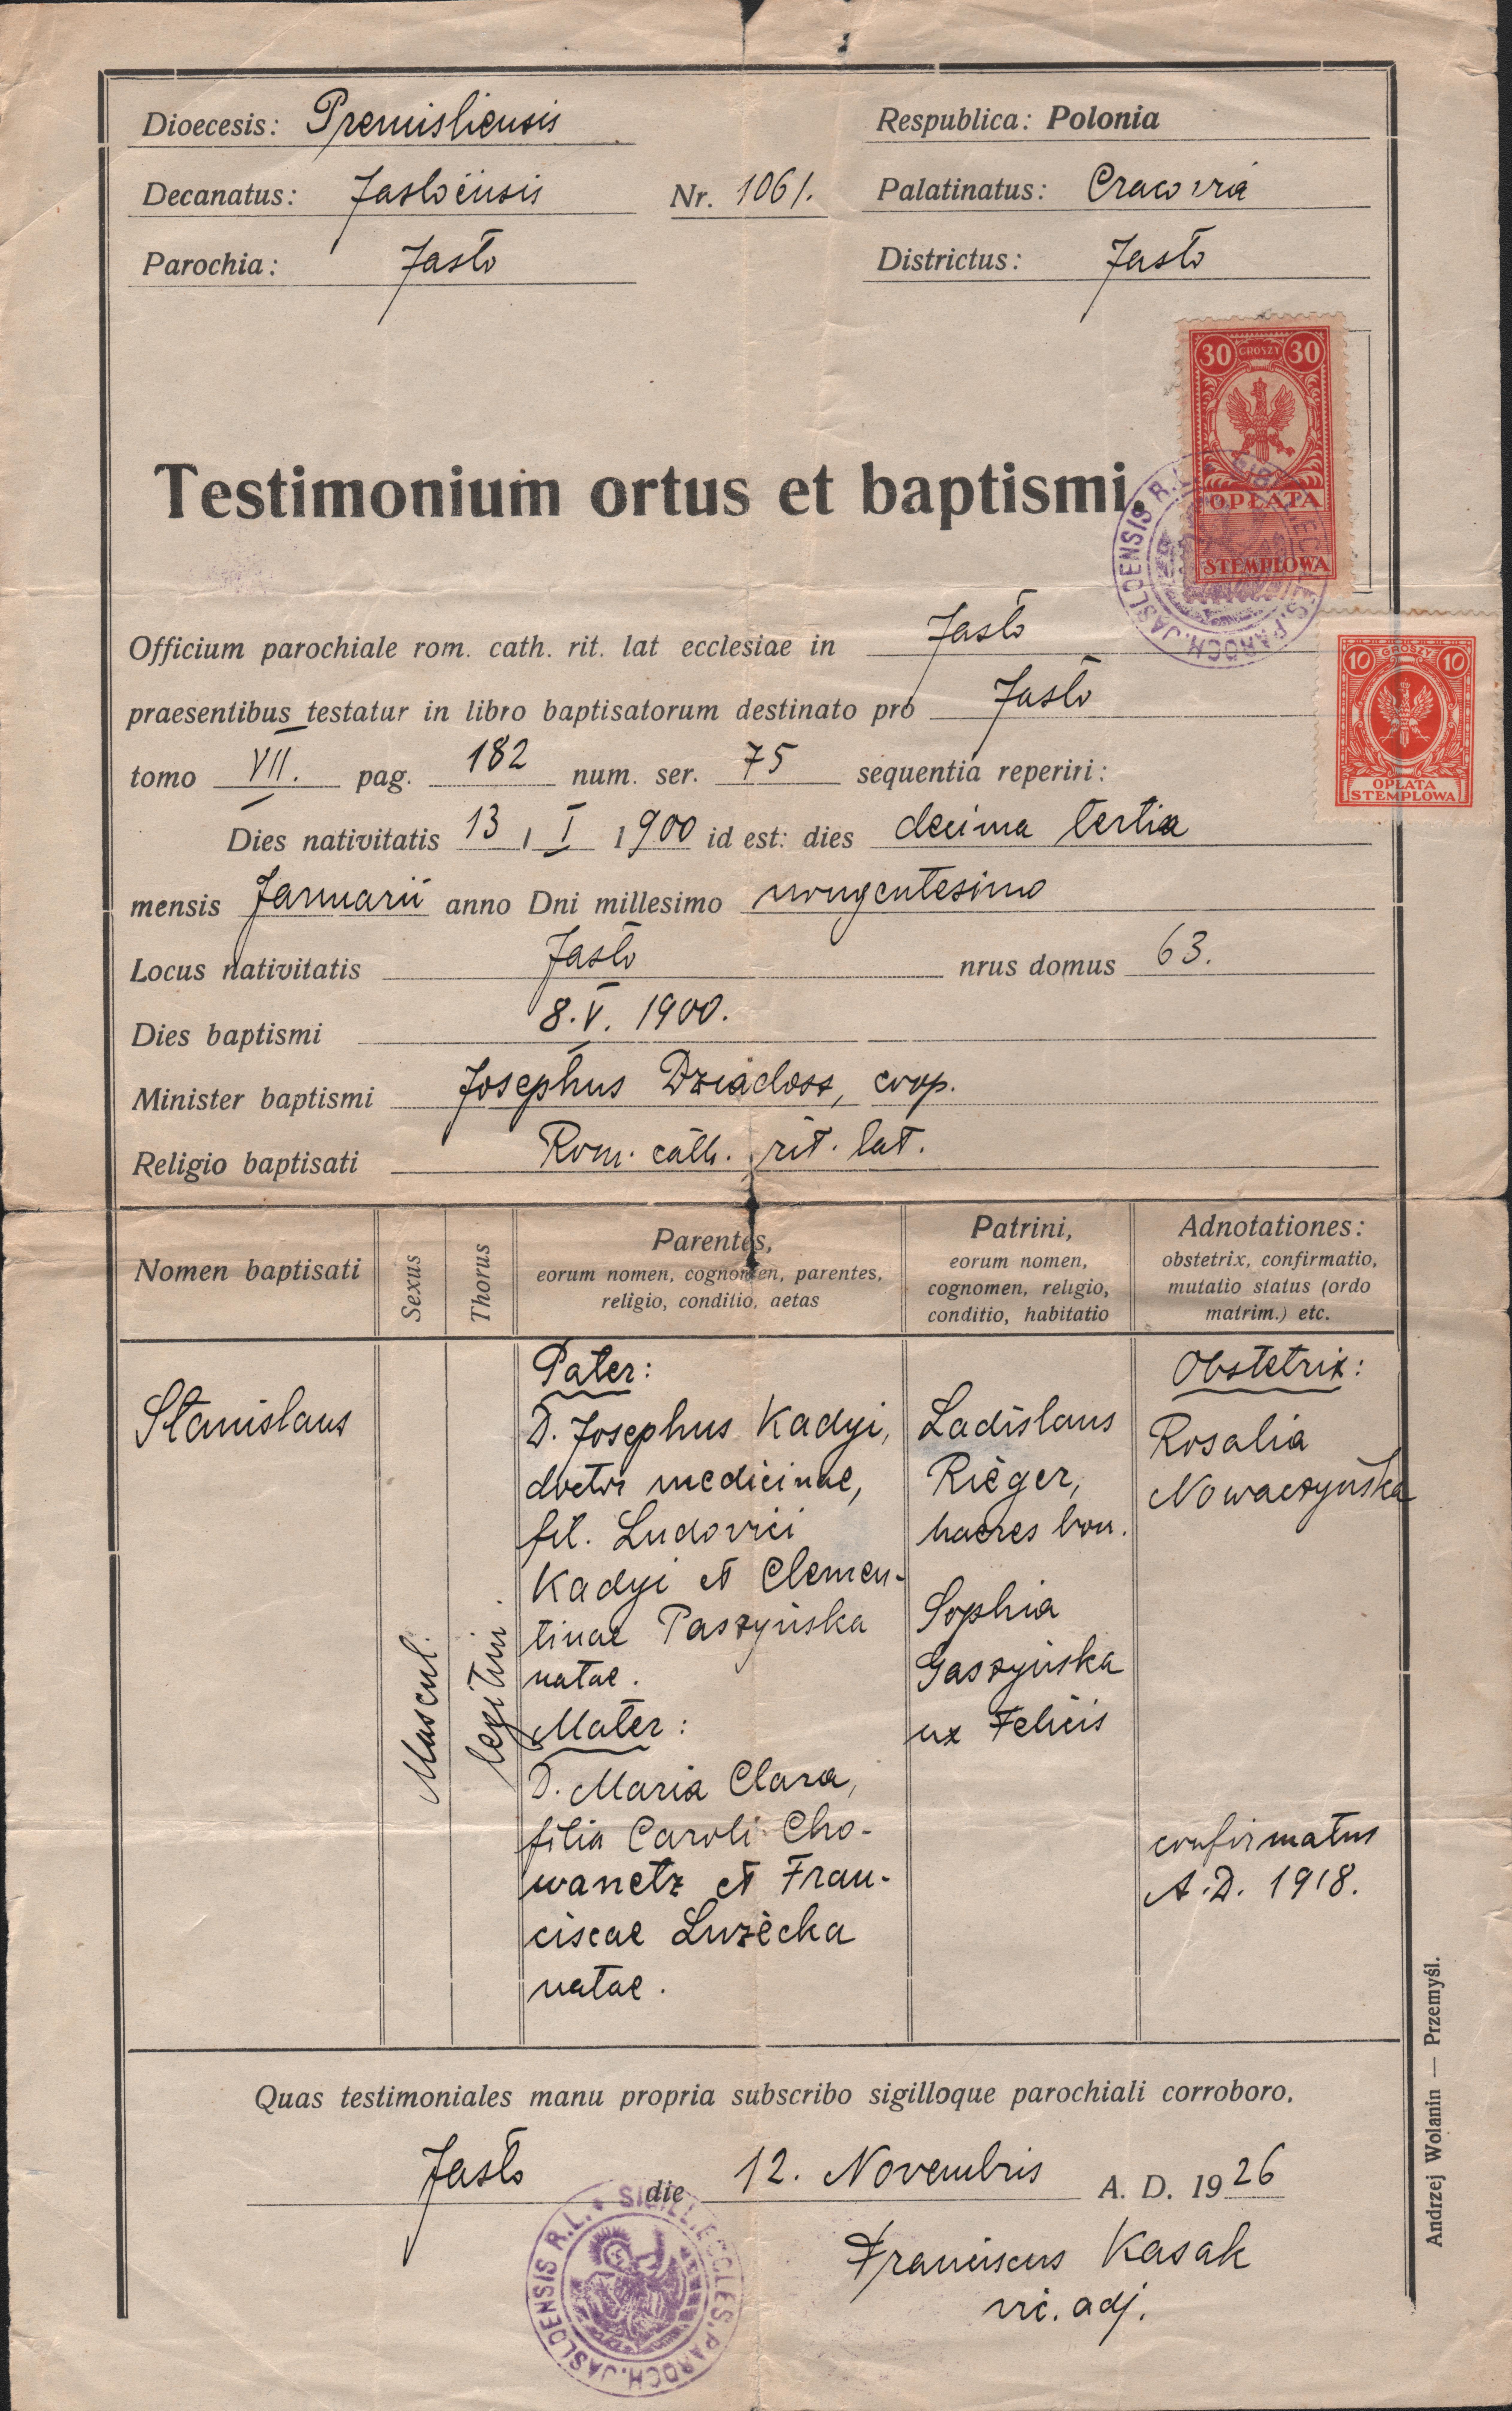 Dioecesis: Premisliensis
Respublica: Polonia
Decanatus: Jasloënsis
Nr. 1061.
Palatinatus: Cracovia
Parochia: Jasło
Districtus: Jasło
30 GROSZY 30
OPŁATA
STEMPLOWA
Testimonium ortus et baptismi.
SIGILL. ECCLES. PAROCH. JASLOENSIS R.L.
10 GROSZY 10
OPŁATA
STEMPLOWA
Officium parochiale rom. cath. rit. lat ecclesiae in Jasło
praesentibus testatur in libro baptisatorum destinato pro Jasło
tomo VII. pag. 182 num. ser. 75 sequentia reperiri:
Dies nativitatis 13 / I 1900 id est: dies decima tertia
mensis Januarii anno Dni millesimo nongentesimo
Locus nativitatis Jasło nrus domus 63.
Dies baptismi 8. V. 1900.
Minister baptismi Josephus Dziadosz, coop.
Religio baptisati Rom. cath. rit. lat.
Nomen baptisati
Sexus
Thorus
Parentes,
eorum nomen, cognomen, parentes,
religio, conditio, aetas
Patrini,
eorum nomen,
cognomen, religio,
conditio, habitatio
Adnotationes:
obstetrix, confirmatio,
mutatio status (ordo
matrim.) etc.
Stanislaus
Mascul.
legitim.
Pater:
D. Josephus Kadyi,
doctor medicinae,
fil. Ludovici
Kadyi et Clemen-
tinae Paszyńska
natae.
Mater:
D. Maria Clara,
filia Caroli Cho-
wanetz et Fran-
ciscae Luzècka
natae.
Ladislaus
Rieger,
haeres bon.
Sophia
Gaszyńska
ux Felicis
Obstetrix:
Rosalia
Nowaczyńska
confirmatus
A.D. 1918.
Quas testimoniales manu propria subscribo sigilloque parochiali corroboro.
Jasło die 12. Novembris A. D. 1926
SIGILL. ECCLES. PAROCH. JASLOENSIS R.L.
Franciscus Kasak
vic. adj.
Andrzej Wolanin — Przemyśl.